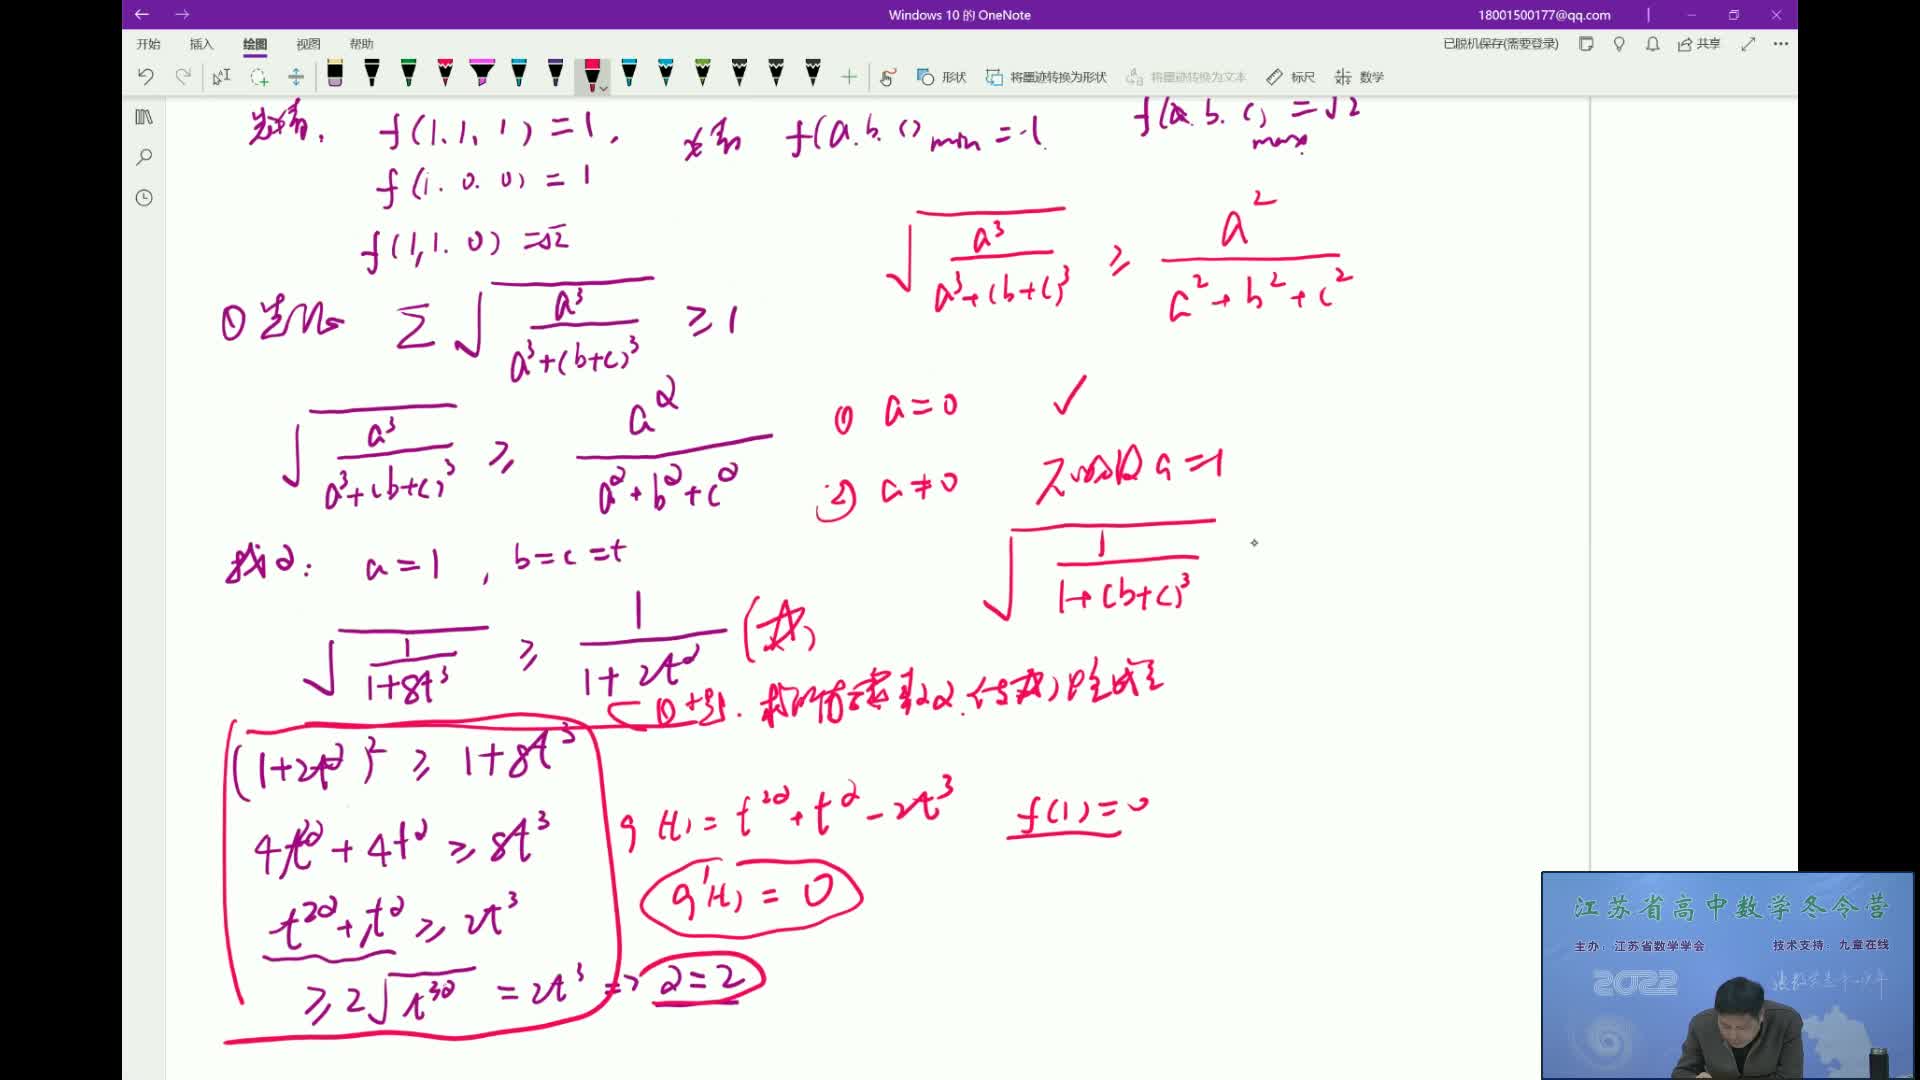 Windows 10 的 OneNote
18001500177@qq.com
开始 插入 绘图 视图 帮助
已脱机保存(需要登录) 共享
形状 将墨迹转换为形状 将墨迹转换为文本 标尺 数学
f(1.1,1)=1, f(a.b.c)min=-1 f(a.b.c)max=√2
f(1.0.0)=1
f(1,1.0)=√2
√(a³/(a³+(b+c)³)) ≥ a²/(a²+b²+c²)
① 先证 Σ√(a³/(a³+(b+c)³)) ≥1
√(a³/(a³+(b+c)³)) ≥ a^α/(a^α+b^α+c^α)
① a=0 ✓
② a≠0 不妨设a=1
√(1/(1+(b+c)³))
找α: a=1, b=c=t
√(1/(1+8t³)) ≥ 1/(1+2t^α) (☆)
(1+2t^α)² ≥ 1+8t³
4t^2α+4t^α ≥ 8t³
t^2α+t^α ≥ 2t³
≥2√(t^3α) = 2t³ => α=2
g(t)=t^2α+t^α-2t³ f(1)=0
g'(t)=0
江苏省高中数学冬令营
主办：江苏省数学学会 技术支持：九章在线
2022